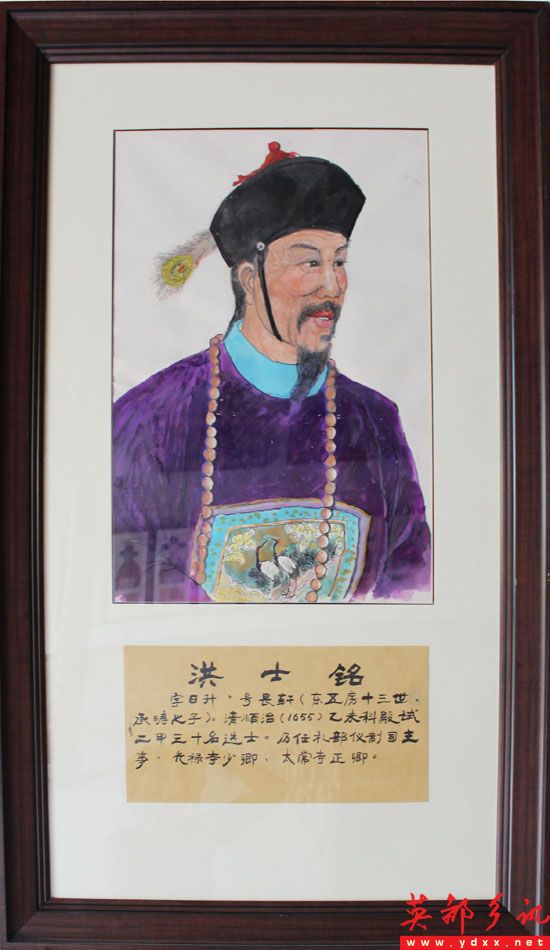 洪士铭
字日升，号長轩（东五房十三世、
承畴之子）。清順治（1655）乙未科殿试
二甲三十名进士。历任礼部仪制司主
事、光禄寺少卿、太常寺正卿。
英都乡讯
www.ydxx.net